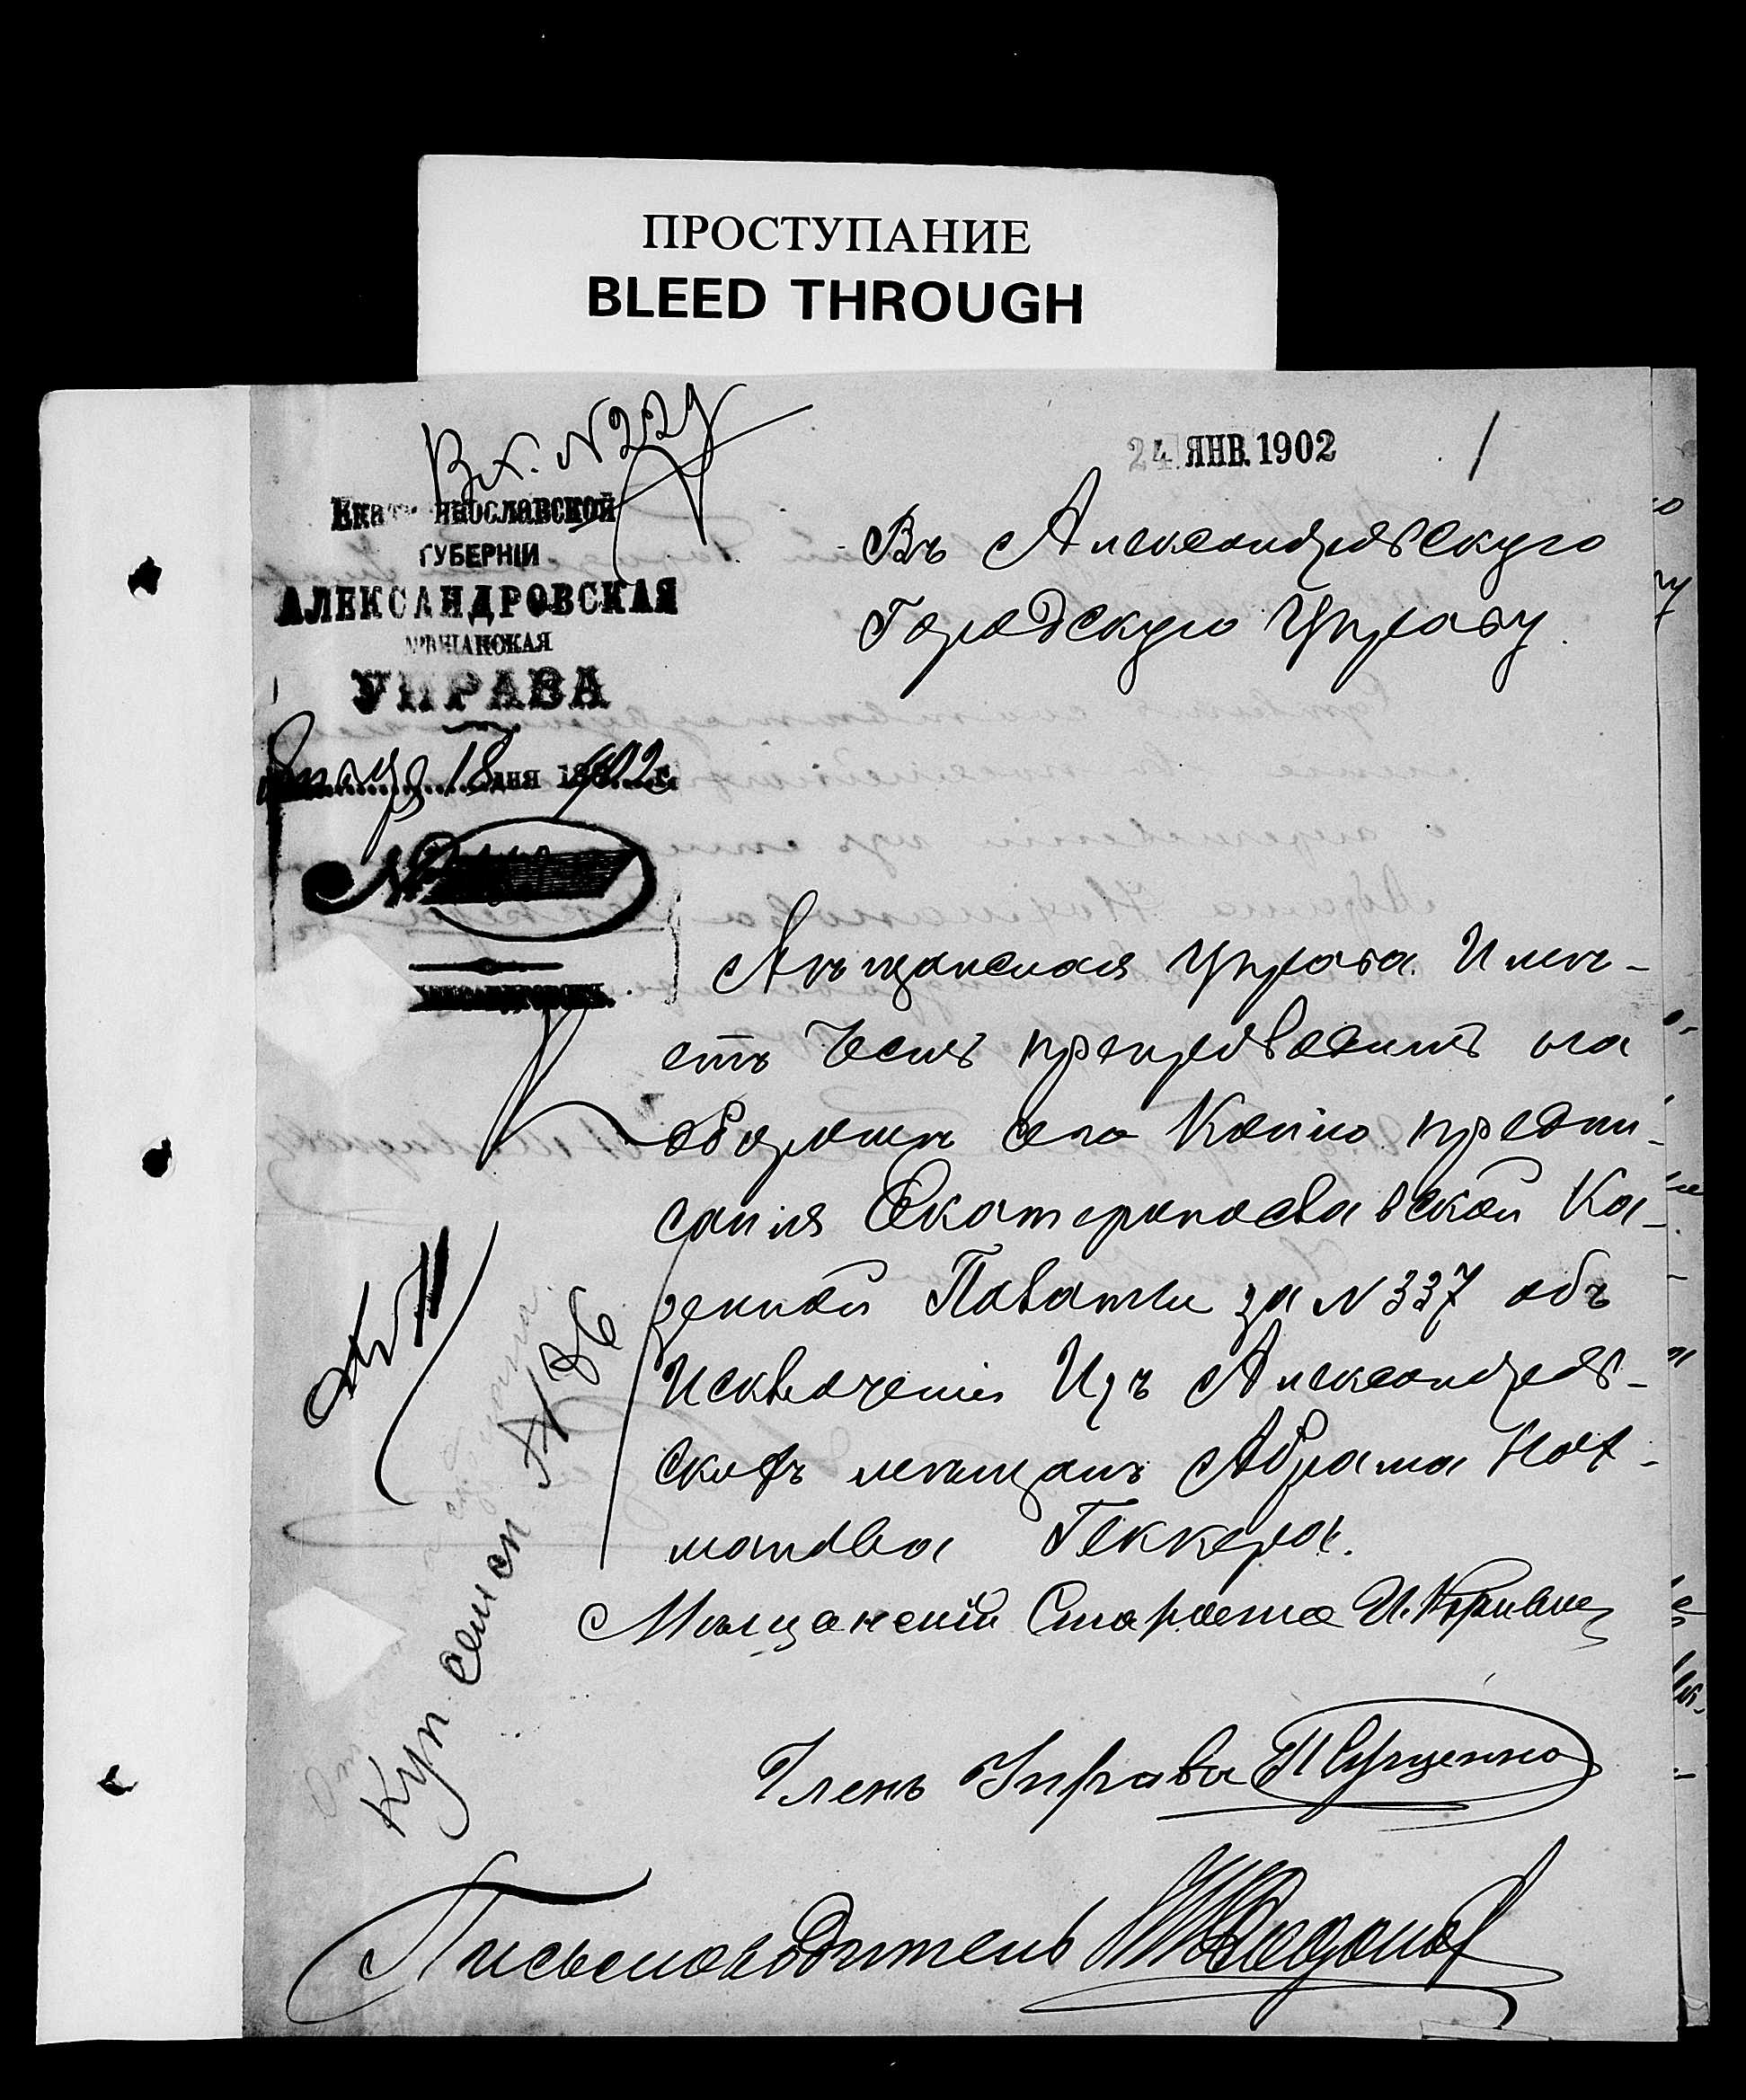 ПРОСТУПАНИЕ
BLEED THROUGH
Вх. №227
24 ЯНВ. 1902
1
Екатеринославской
ГУБЕРНІИ
АЛЕКСАНДРОВСКАЯ
МѢЩАНСКАЯ
УПРАВА
Января 18 дня 1902 г.
№
АЛЕКСАНДРОВСКЪ.
Въ Александровскую
Городскую Управу.
Мѣщанская Управа Имѣ-
етъ Честь препроводить на
обороте сего Копію предпи-
санія Екатеринославской Ка-
зенной Палаты за №337 объ
Исключеніи Изъ Александров-
скихъ мѣщанъ Абрама Нох-
манова Геккера.
Мѣщанскій Староста И.
Членъ Управы
Письмоводитель
Куп. семей №36